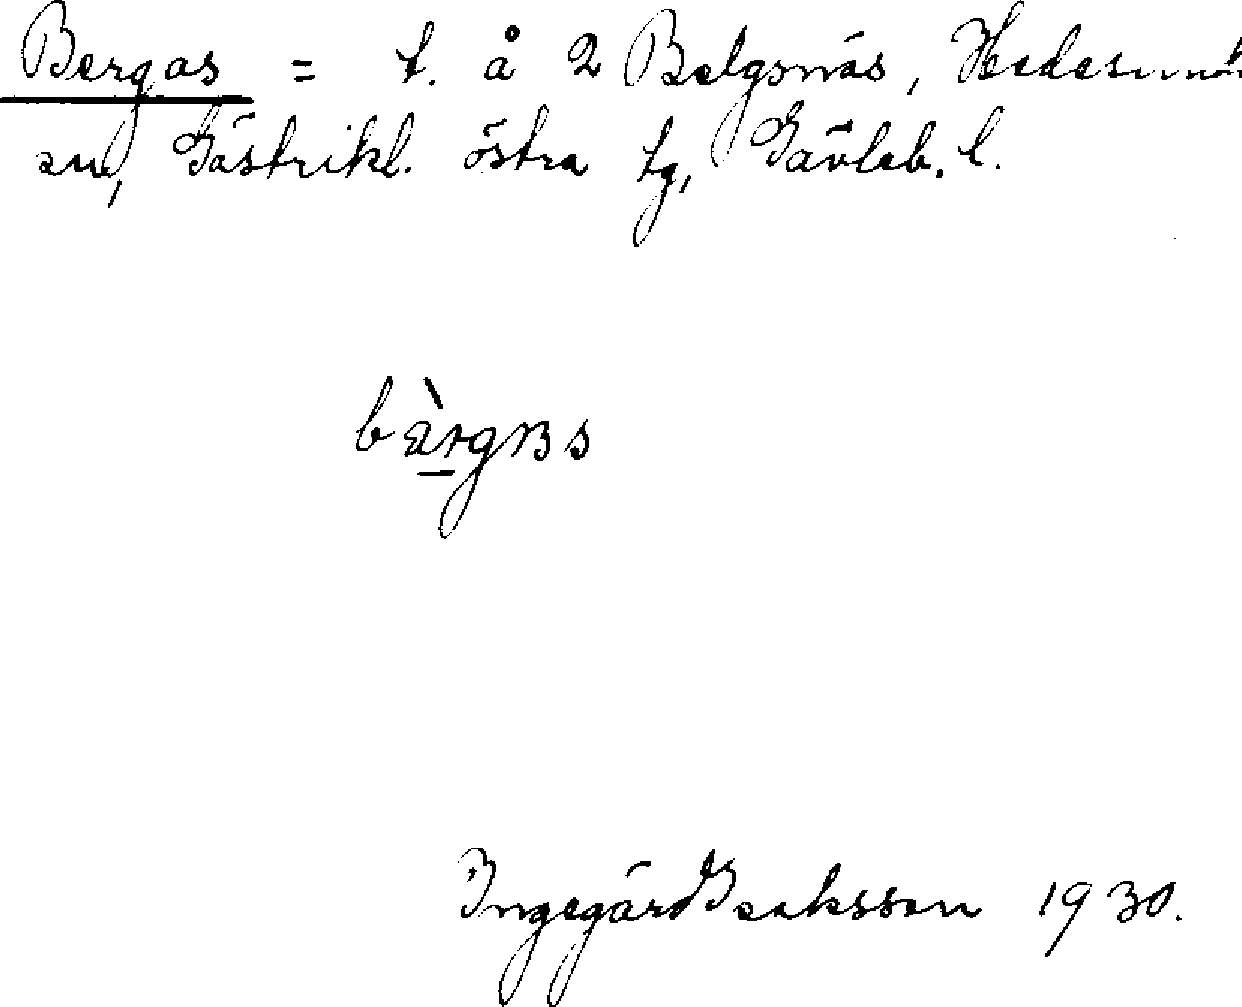 Bergas = t. å 2 Belgsnäs, Hedesunda
sn, Gästrikl. östra tg, Gävleb. l.
Ingegärd Isaksson 1930.